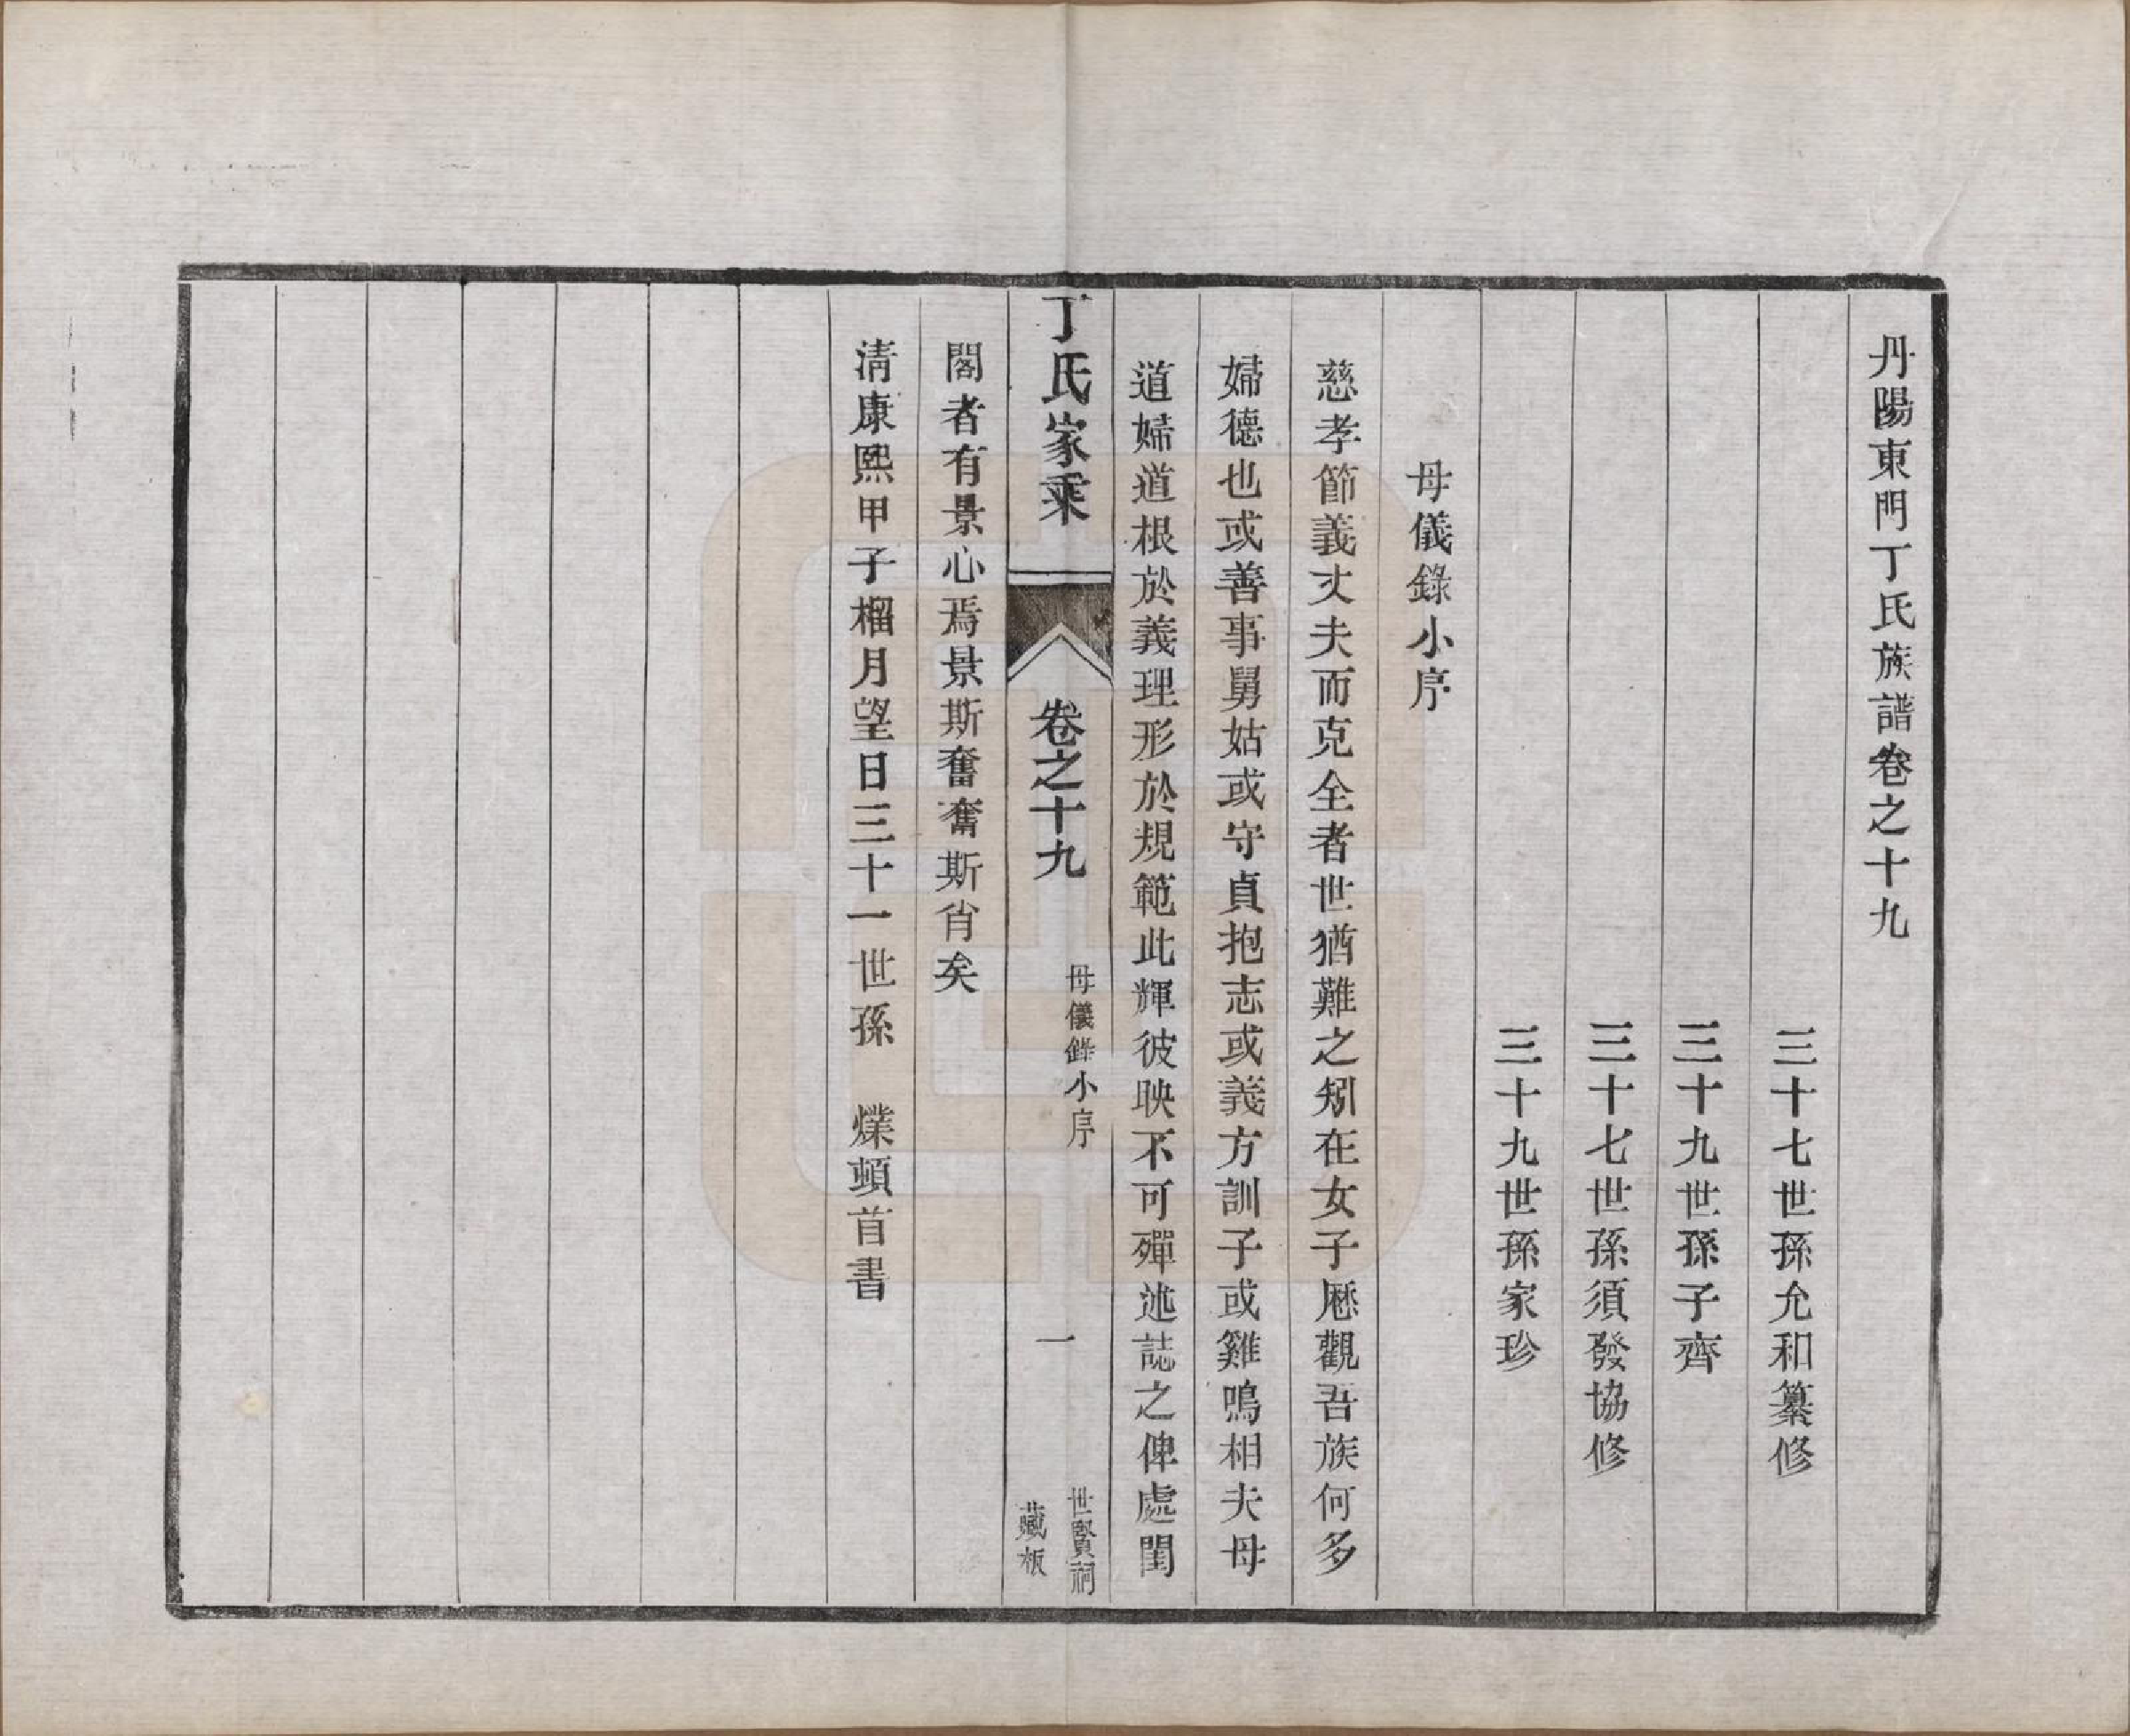 丹陽東門丁氏族譜卷之十九
三十七世孫允和纂修
三十九世孫子齊
三十七世孫須發協修
三十九世孫家珍
母儀錄小序
慈孝節義丈夫而克全者世猶難之矧在女子歷觀吾族何多
婦德也或善事舅姑或守貞抱志或義方訓子或雞鳴相夫母
道婦道根於義理形於規範此輝彼映不可殫述誌之俾處閨
丁氏家乘
卷之十九
母儀錄小序
一
世賢祠
藏板
閣者有景心焉景斯奮奮斯肖矣
清康熙甲子榴月望日三十一世孫　爍頓首書